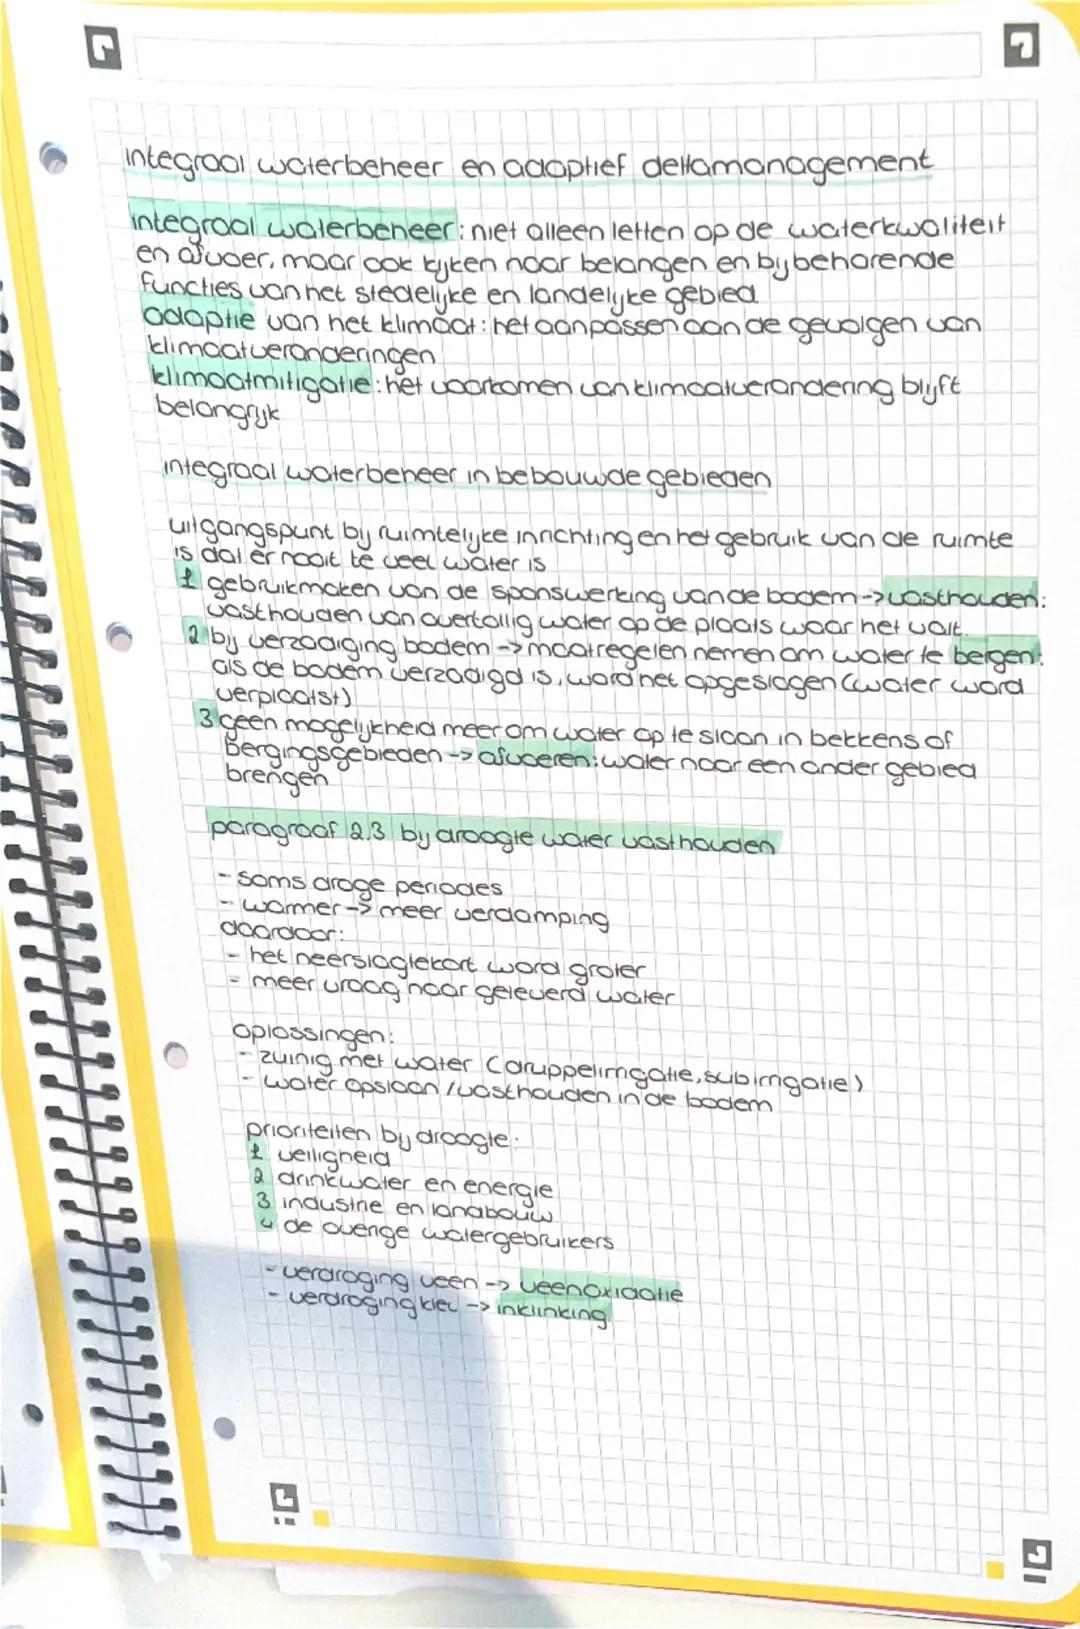 integraal waterbeheer en adaptief deltamanagement
integraal waterbeheer: niet alleen letten op de waterkwaliteit
en afvoer, maar ook kijken naar belangen en bijbehorende
functies van het stedelijke en landelijke gebied
adaptie van het klimaat: het aanpassen aan de gevolgen van
klimaatveranderingen
klimaatmitigatie: het voorkomen van klimaatverandering blijft
belangrijk
integraal waterbeheer in bebouwde gebieden
uitgangspunt bij ruimtelijke inrichting en het gebruik van de ruimte
is dat er nooit te veel water is
1 gebruikmaken van de sponswerking van de bodem -> vasthouden:
vasthouden van overtollig water op de plaats waar het valt.
2 bij verzadiging bodem -> maatregelen nemen om water te bergen:
als de bodem verzadigd is, word het opgeslagen (water word
verplaatst)
3 geen mogelijkheid meer om water op te slaan in bekkens of
bergingsgebieden -> afvoeren: water naar een ander gebied
brengen
paragraaf 2.3 bij droogte water vasthouden
- soms droge periodes
- warmer -> meer verdamping
daardoor:
- het neerslagtekort word groter
- meer vraag naar geleverd water
oplossingen:
- zuinig met water (druppelirrigatie, subirrigatie)
- water opslaan / vasthouden in de bodem
prioriteiten bij droogte:
1 veiligheid
2 drinkwater en energie
3 industrie en landbouw
4 de overige watergebruikers
- verdroging veen -> veenoxidatie
- verdroging klei -> inklinking